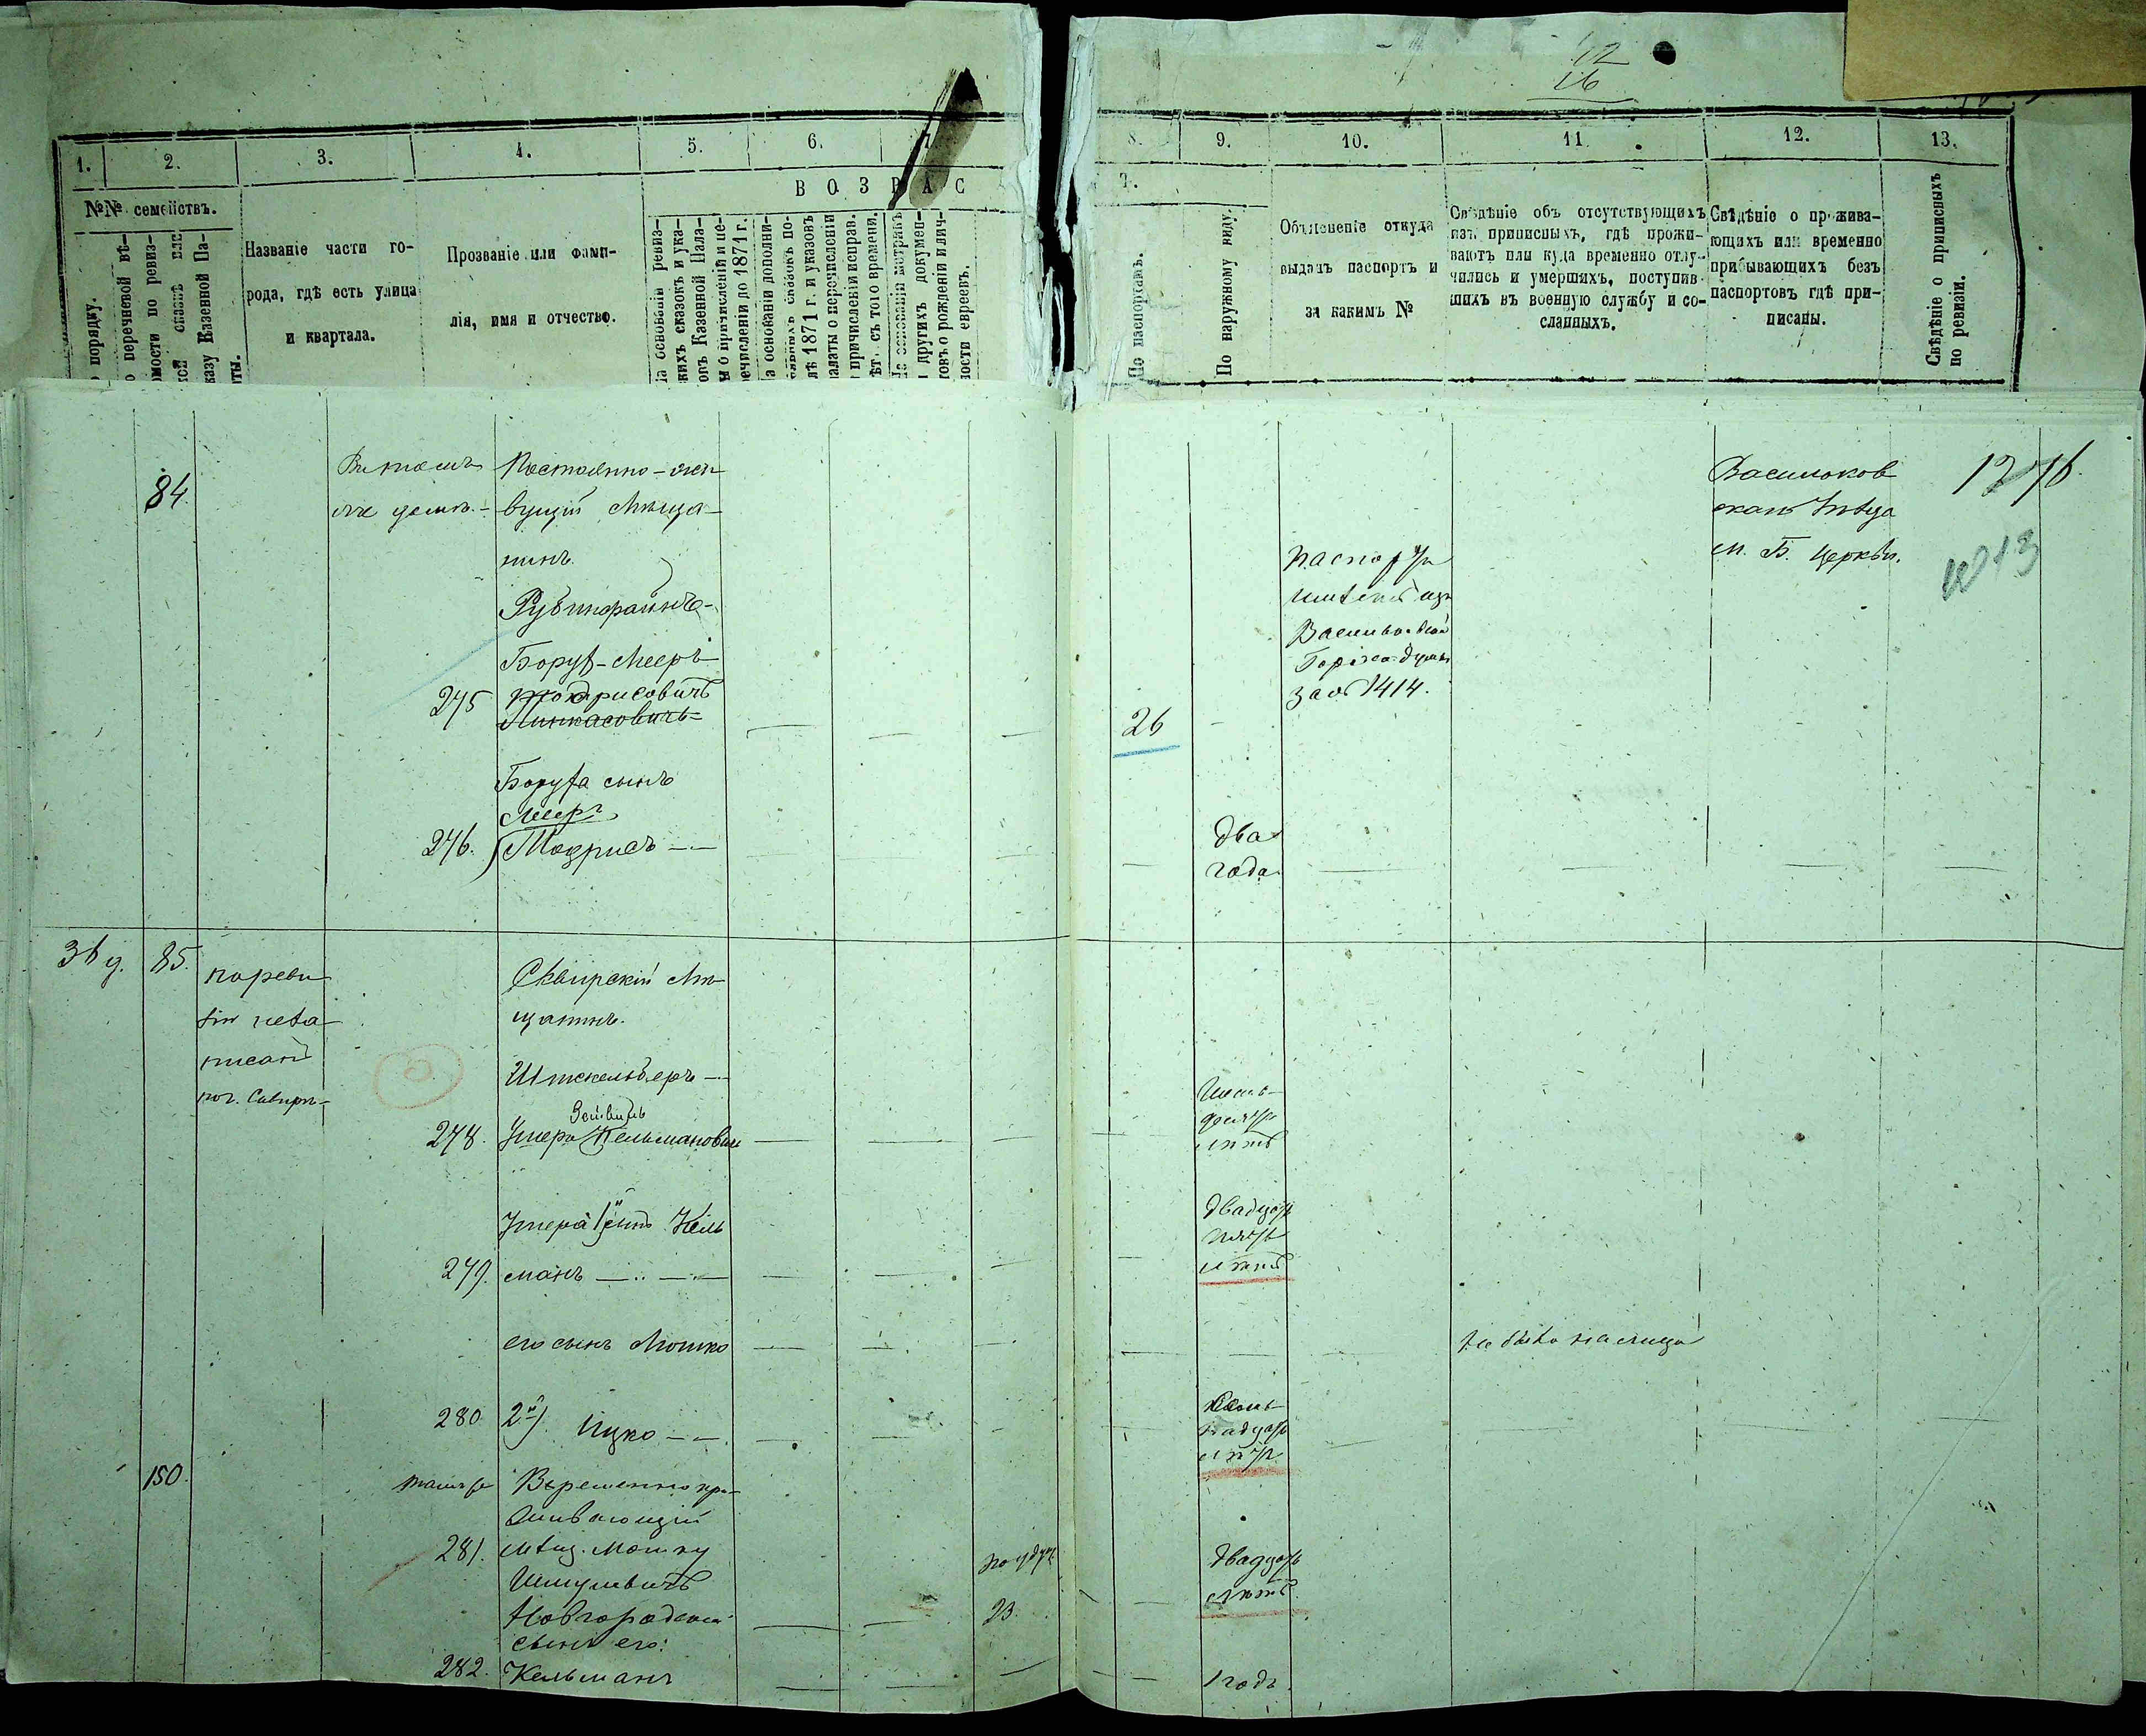 12
26
1. 2. 3. 4. 5. 6. 7
8. 9. 10. 11. 12. 13.
№№ семействъ.
ВОЗРАС
Т.
порядку.
перечневой вѣ-
омости по ревиз-
казу Казенной Па-
ты.
Названіе части го-
рода, гдѣ есть улица
и квартала.
Прозваніе или фами-
лія, имя и отчество.
На основаніи ревиз-
скихъ сказокъ и ука-
зовъ Казенной Пала-
ты о причисленіи и пе-
речисленіи до 1871 г.
На основаніи дополни-
тельныхъ сказокъ по-
слѣ 1871 г. и указовъ
палаты о перечисленіи
и причисленіи исправ.
лѣтъ съ того времени.
На основаніи метрикъ
и другихъ докумен-
товъ о рожденіи и лич-
ности евреевъ.
По паспортамъ.
По наружному виду.
Объясненіе откуда
выданъ паспортъ и
за какимъ №
Свѣдѣніе объ отсутствующихъ
изъ приписныхъ, гдѣ прожи-
ваютъ или куда временно отлу-
чились и умершихъ, поступив-
шихъ въ военную службу и со-
сланныхъ.
Свѣдѣніе о прожива-
ющихъ или временно
прибывающихъ безъ
паспортовъ гдѣ при-
писаны.
Свѣдѣніе о приписныхъ
по ревизіи.
84.
Въ томъ
же домѣ.-
Постоянно-жи
вущій Мѣща-
нинъ
Рубинфайнъ-
Борух-Мееръ
245 Модрисовичъ
Пинкасовичъ
26
Паспортъ
имѣетъ изъ
Васильковской
Город. Думы
за № 1414.
Васильков
скаго уѣзда
м. Б. Церкви.
1276.
1013
Боруха сынъ
Меер
246. Модрисъ
два
года
36 у. 85.
по реви
зіи не за
писанъ
по г. Сквирѣ-
Сквирскій Мѣ
щанинъ.
Штекельберъ
Зейвель
278. Умера Кельмановичъ
десять
лѣтъ
Умера 1й сынъ Кель
279. манъ
двадцать
пять
лѣтъ
его сынъ Мошко
не было на лицо
280 2й) Ицко
надцать
лѣтъ
150.
тамъ же
Временно про-
живающій
281. Мѣщ. Мошку
Шмулевичъ
23.
двадцать
лѣтъ
сынъ его:
282. Кельманъ
1 годъ